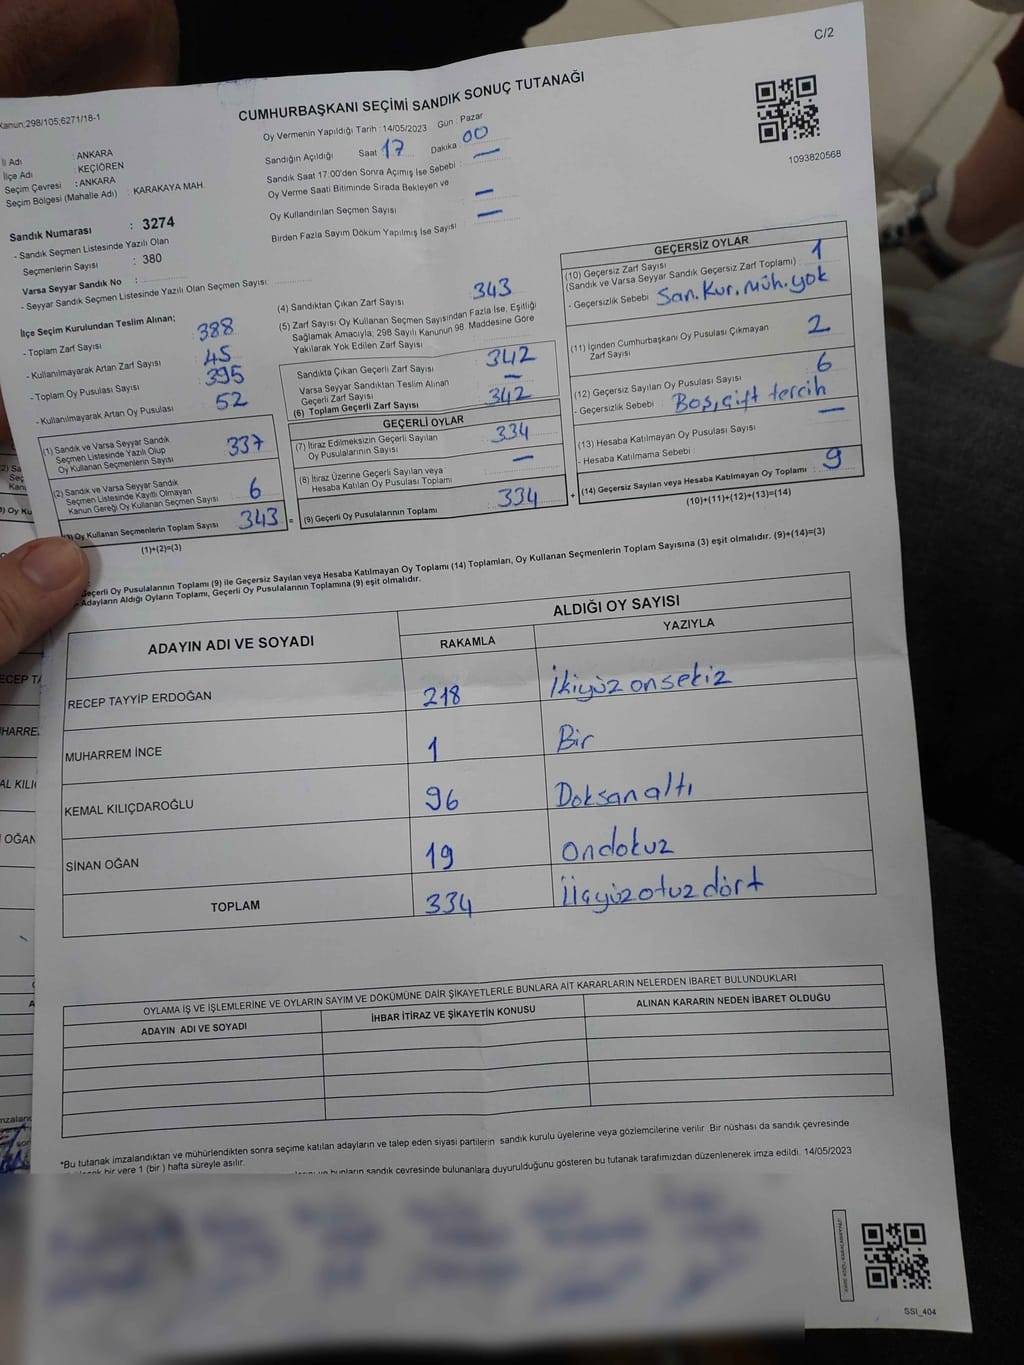 C/2
CUMHURBAŞKANI SEÇİMİ SANDIK SONUÇ TUTANAĞI
Kanun:298/105;6271/18-1
1093820568
Oy Vermenin Yapıldığı Tarih : 14/05/2023 Gün : Pazar
Sandığın Açıldığı Saat 17 Dakika : 00
Sandık Saat 17:00'den Sonra Açımış İse Sebebi : —
Oy Verme Saati Bitiminde Sırada Bekleyen ve
Oy Kullandırılan Seçmen Sayısı —
Birden Fazla Sayım Döküm Yapılmış İse Sayısı —
İl Adı : ANKARA
İlçe Adı : KEÇİÖREN
Seçim Çevresi : ANKARA
Seçim Bölgesi (Mahalle Adı) : KARAKAYA MAH.
Sandık Numarası : 3274
- Sandık Seçmen Listesinde Yazılı Olan
Seçmenlerin Sayısı : 380
Varsa Seyyar Sandık No :
- Seyyar Sandık Seçmen Listesinde Yazılı Olan Seçmen Sayısı:
İlçe Seçim Kurulundan Teslim Alınan;
- Toplam Zarf Sayısı 388
- Kullanılmayarak Artan Zarf Sayısı 45
- Toplam Oy Pusulası Sayısı 395
- Kullanılmayarak Artan Oy Pusulası 52
(1) Sandık ve Varsa Seyyar Sandık
Seçmen Listesinde Yazılı Olup
Oy Kullanan Seçmenlerin Sayısı 337
(2) Sandık ve Varsa Seyyar Sandık
Seçmen Listesinde Kayıtlı Olmayan
Kanun Gereği Oy Kullanan Seçmen Sayısı 6
Oy Kullanan Seçmenlerin Toplam Sayısı 343 =
(1)+(2)=(3)
(4) Sandıktan Çıkan Zarf Sayısı 343
(5) Zarf Sayısı Oy Kullanan Seçmen Sayısından Fazla İse, Eşitliği
Sağlamak Amacıyla; 298 Sayılı Kanunun 98. Maddesine Göre
Yakılarak Yok Edilen Zarf Sayısı
Sandıkta Çıkan Geçerli Zarf Sayısı 342
Varsa Seyyar Sandıktan Teslim Alınan
Geçerli Zarf Sayısı —
(6) Toplam Geçerli Zarf Sayısı 342
GEÇERLİ OYLAR
(7) İtiraz Edilmeksizin Geçerli Sayılan
Oy Pusulalarının Sayısı 334
(8) İtiraz Üzerine Geçerli Sayılan veya
Hesaba Katılan Oy Pusulası Toplamı —
(9) Geçerli Oy Pusulalarının Toplamı 334 +
GEÇERSİZ OYLAR
(10) Geçersiz Zarf Sayısı
(Sandık ve Varsa Seyyar Sandık Geçersiz Zarf Toplamı) : 1
- Geçersizlik Sebebi San.Kur.müh.yok
(11) İçinden Cumhurbaşkanı Oy Pusulası Çıkmayan
Zarf Sayısı 2
(12) Geçersiz Sayılan Oy Pusulası Sayısı 6
- Geçersizlik Sebebi : Boş, çift tercih
(13) Hesaba Katılmayan Oy Pusulası Sayısı —
- Hesaba Katılmama Sebebi :
(14) Geçersiz Sayılan veya Hesaba Katılmayan Oy Toplamı 9
(10)+(11)+(12)+(13)=(14)
Geçerli Oy Pusulalarının Toplamı (9) ile Geçersiz Sayılan veya Hesaba Katılmayan Oy Toplamı (14) Toplamları, Oy Kullanan Seçmenlerin Toplam Sayısına (3) eşit olmalıdır. (9)+(14)=(3)
- Adayların Aldığı Oyların Toplamı, Geçerli Oy Pusulalarının Toplamına (9) eşit olmalıdır.
ADAYIN ADI VE SOYADI
ALDIĞI OY SAYISI
RAKAMLA YAZIYLA
RECEP TAYYİP ERDOĞAN 218 İkiyüz onsekiz
MUHARREM İNCE 1 Bir
KEMAL KILIÇDAROĞLU 96 Doksan altı
SİNAN OĞAN 19 Ondokuz
TOPLAM 334 Üçyüzotuz dört
OYLAMA İŞ VE İŞLEMLERİNE VE OYLARIN SAYIM VE DÖKÜMÜNE DAİR ŞİKAYETLERLE BUNLARA AİT KARARLARIN NELERDEN İBARET BULUNDUKLARI
ADAYIN ADI VE SOYADI İHBAR İTİRAZ VE ŞİKAYETİN KONUSU ALINAN KARARIN NEDEN İBARET OLDUĞU
*Bu tutanak imzalandıktan ve mühürlendikten sonra seçime katılan adayların ve talep eden siyasi partilerin sandık kurulu üyelerine veya gözlemcilerine verilir. Bir nüshası da sandık çevresinde
bir yere 1 (bir) hafta süreyle asılır.
bunların sandık çevresinde bulunanlara duyurulduğunu gösteren bu tutanak tarafımızdan düzenlenerek imza edildi. 14/05/2023
SSI_404